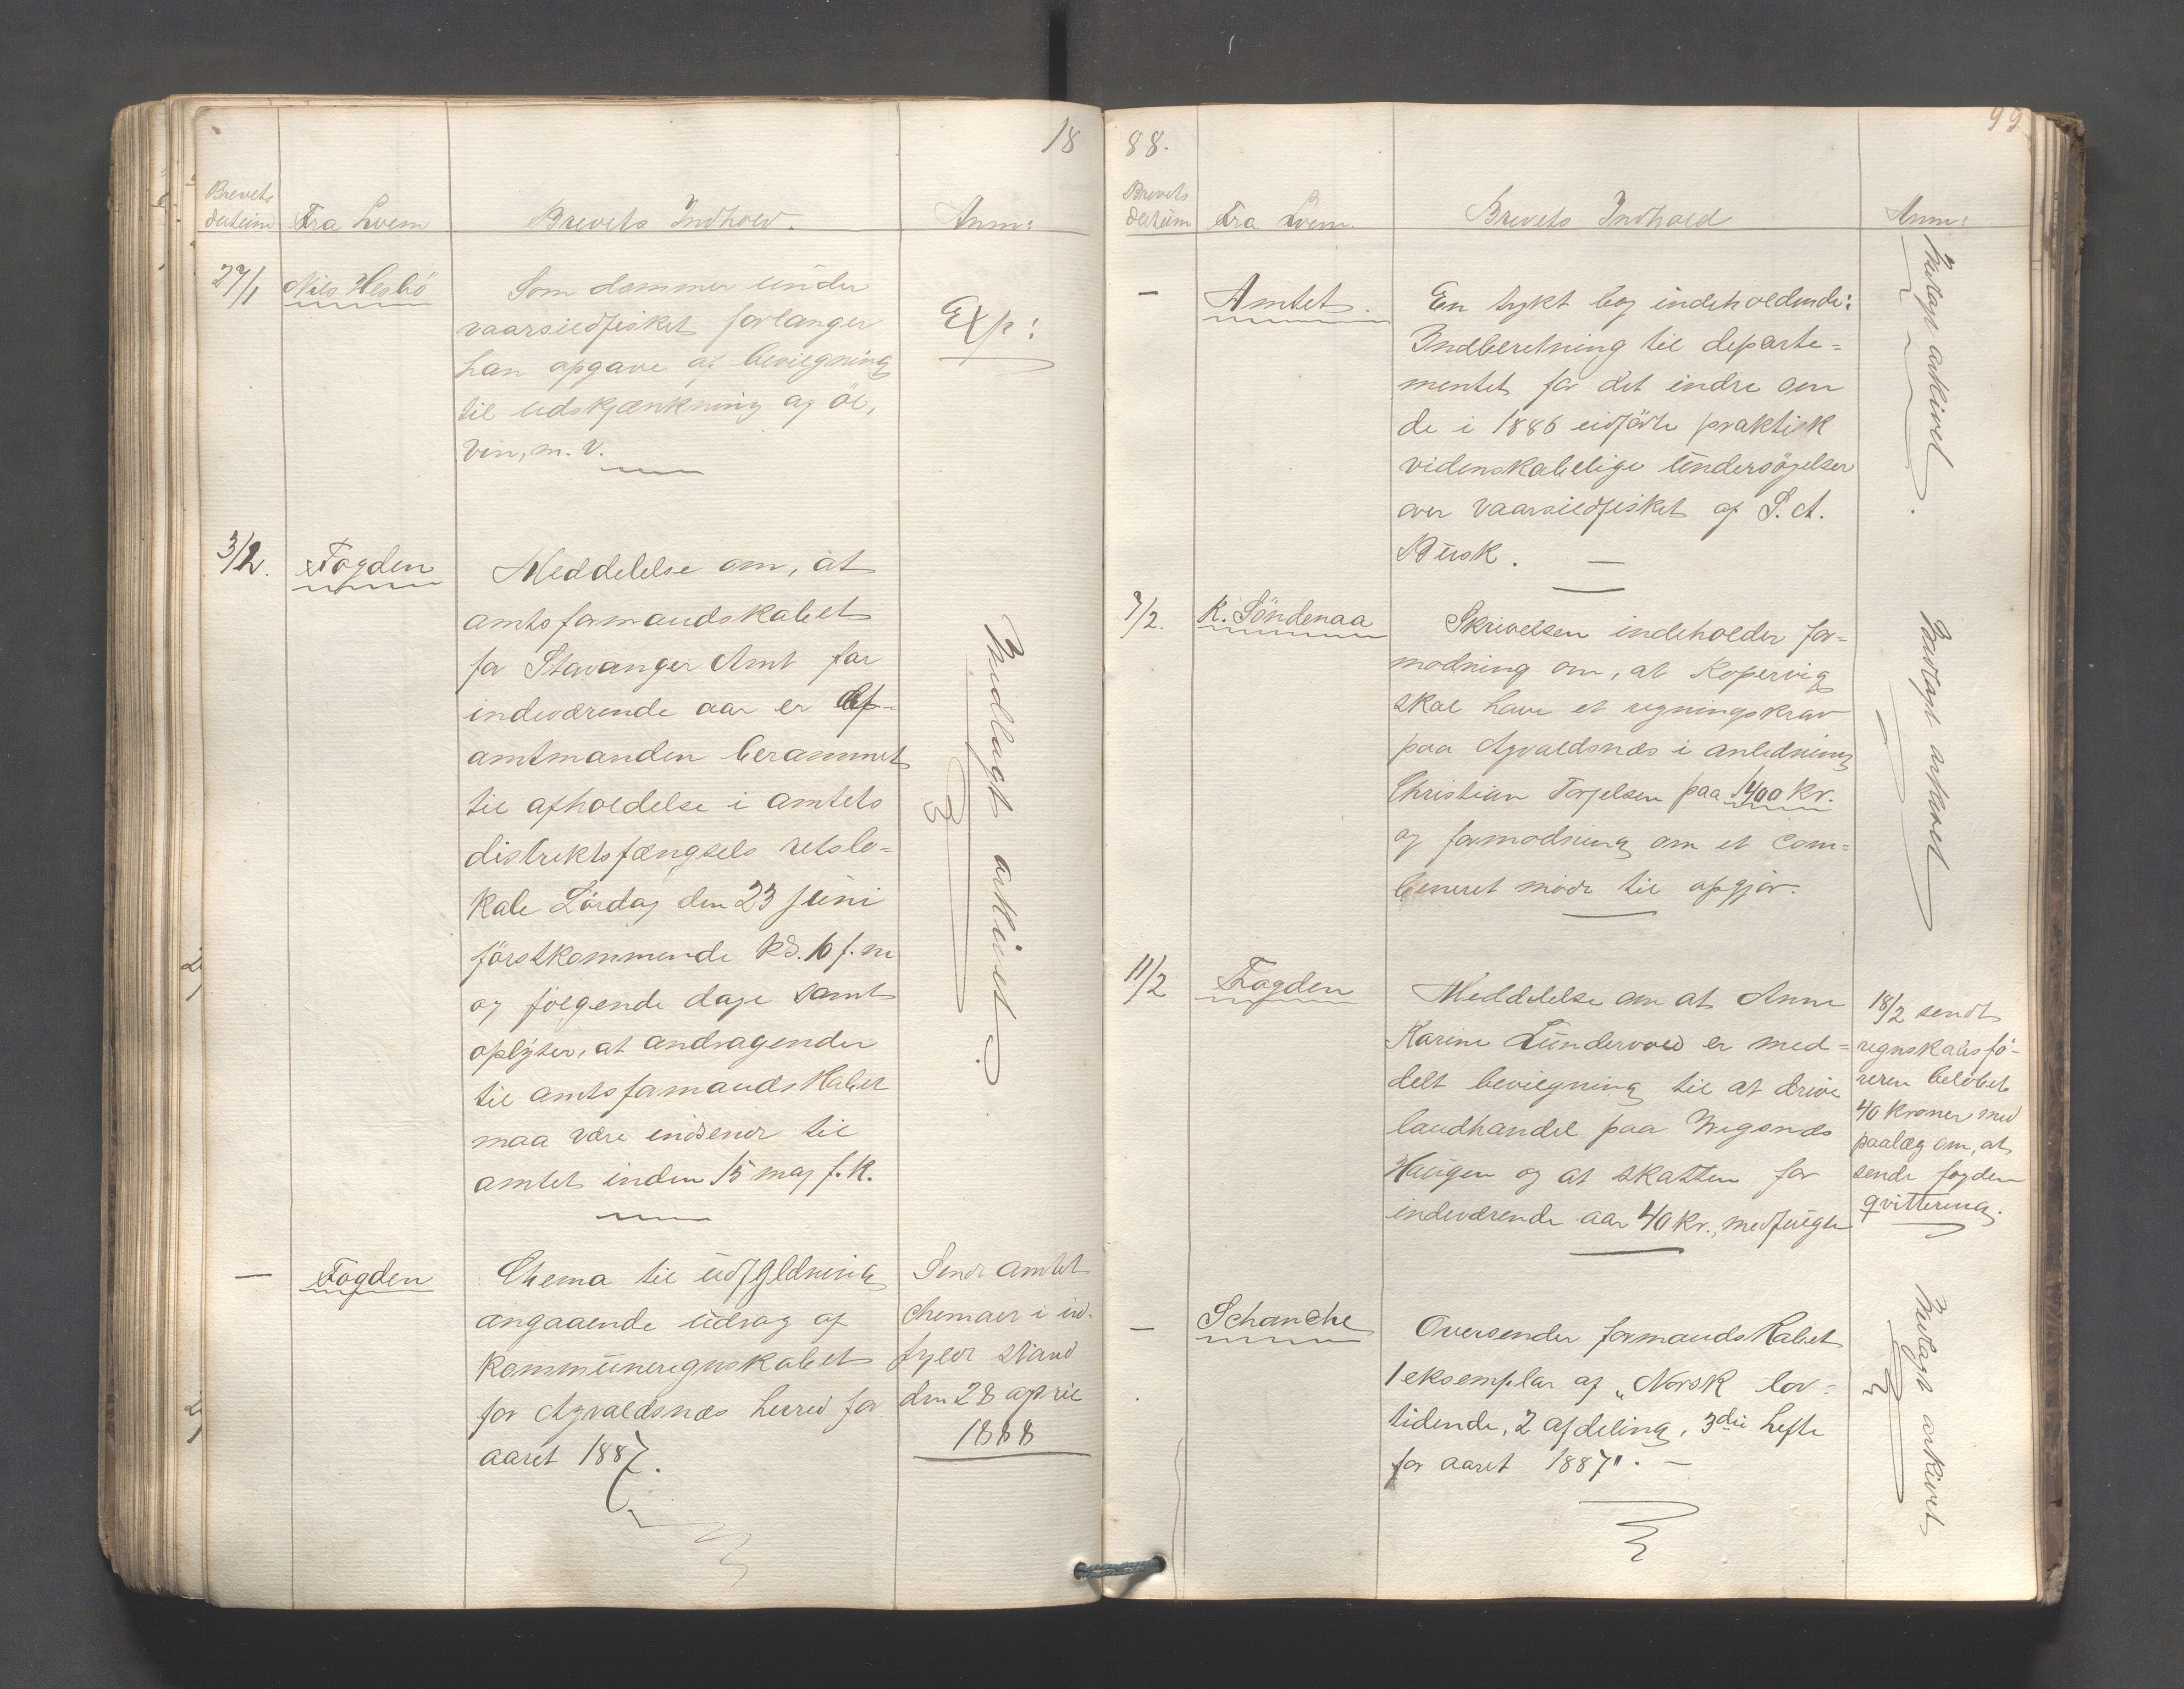 18
Brevets
datum Fra hvem Brevets Indhold. Anm:
27/1 Nils Hesbö
Som dommer under
vaarsildfisket forlanger
han opgave af bevilgning
til udskjænkning af öl,
vin, m. v.
Exp:
3/2. Fogden
Meddelelse om, at
amtsformandskabet
for Stavanger Amt for
indeværende aar er af
amtmanden berammet
til afholdelse i amtets
distriktsfængsels retslo=
kale Lördag den 23 juni
förstkommende kl. 10 f. m
og fölgende dage samt
oplyser, at andragender
til amtsformandskabet
maa være indsendt til
amtet inden 15 maj f. k.
Henlagt arkivet.
— Fogden
Chema til udfyldning
angaaende udrag af
kommuneregnskabet
for Agvaldsnæs herred for
aaret 1887.
Sendt amtet
chemaer i ud-
fyldt stand
den 28 april
1888
88.
99
Brevets
datum Fra hvem. Brevets Indhold Anm:
— Amtet.
En trykt bog indeholdende:
Indberetning til departe=
mentet for det indre om
de i 1886 udförte praktisk
videnskabelige undersögelser
over vaarsildfisket af S. A.
Buch. —
arkivet.
7/2. K. Söndenaa
Skrivelsen indeholder for=
modning om, at Kopervig
skal have et regningskrav
paa Agvaldsnæs i anledning
Christian Torjelsen paa 1400 kr.
og formodning om et com=
bineret möde til opgjör.
arkivet
11/2 Fogden
Meddelelse om at Anne
Karine Lundervold er med=
delt bevilgning til at drive
landhandel paa
Haugen og at skatten for
indeværende aar 40 kr., medfulgte
18/2 sendt
regnskabsfö-
reren belöbet
40 kroner med
paalæg om, at
sende fogden
qvittering.
— Schanche
Oversender formandskabet
1 eksemplar af „Norsk lov=
tidende, 2 afdeling, 3die hefte
for aaret 1887". —
arkivet